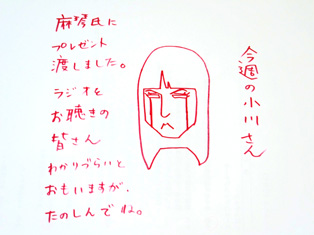 今週の小川さん
麻琴氏に
プレゼント
渡しました。
ラジオを
お聴きの
皆さん
わかりづらいと
おもいますが、
たのしんでね。